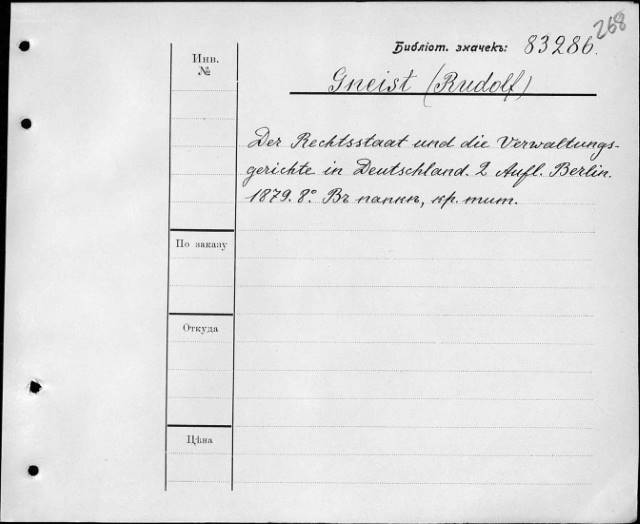 268
Библіот. значекъ: 83286.
Инв.
№
Gneist (Rudolf)
Der Rechtsstaat und die Verwaltungs-
gerichte in Deutschland. 2 Aufl. Berlin.
1879. 8°. Въ папкѣ, кр. тит.
По заказу
Откуда
Цѣна